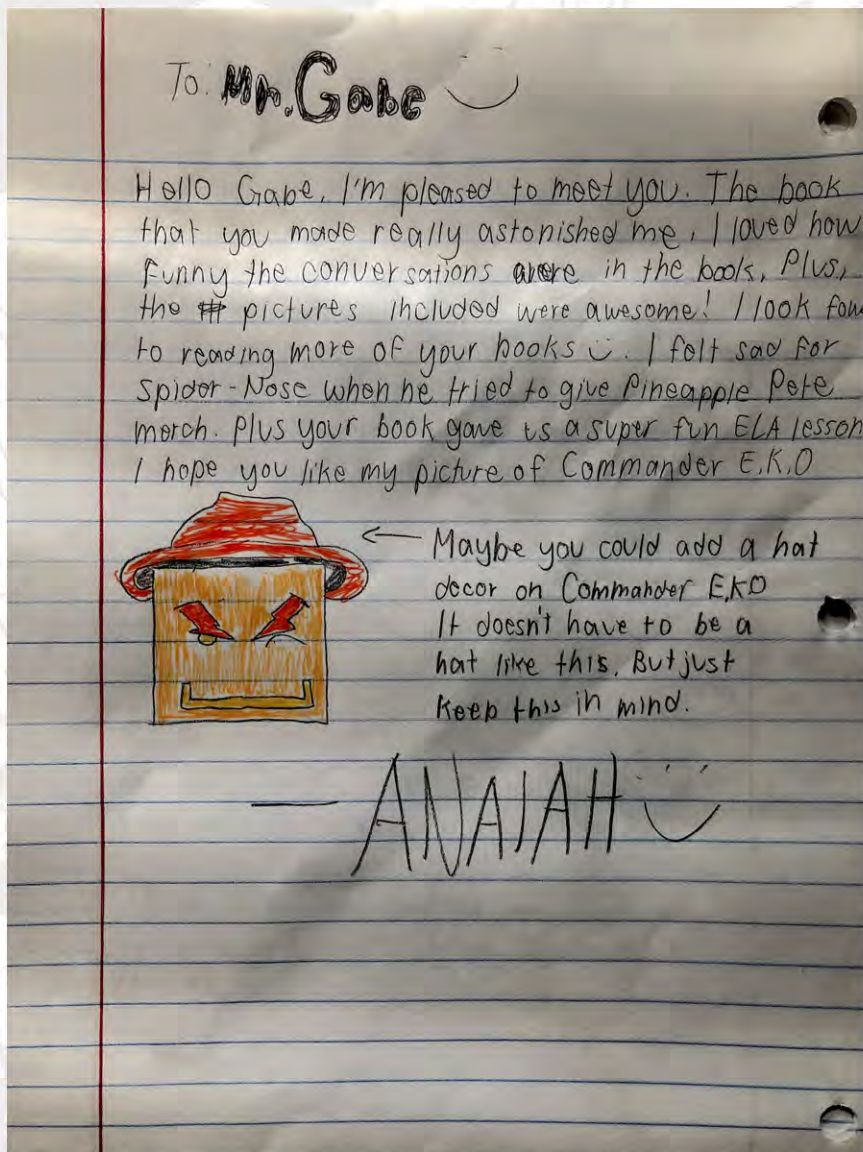 To: Mr. Gabe
Hello Gabe, I'm pleased to meet you. The book
that you made really astonished me. I loved how
funny the conversations were in the book. Plus,
the pictures included were awesome! I look forw
to reading more of your books. I felt sad for
Spider-Nose when he tried to give Pineapple Pete
merch. Plus your book gave us a super fun ELA lesson
I hope you like my picture of Commander E.K.O
Maybe you could add a hat
decor on Commander E.KO
It doesn't have to be a
hat like this. But just
keep this in mind.
— ANAIAH